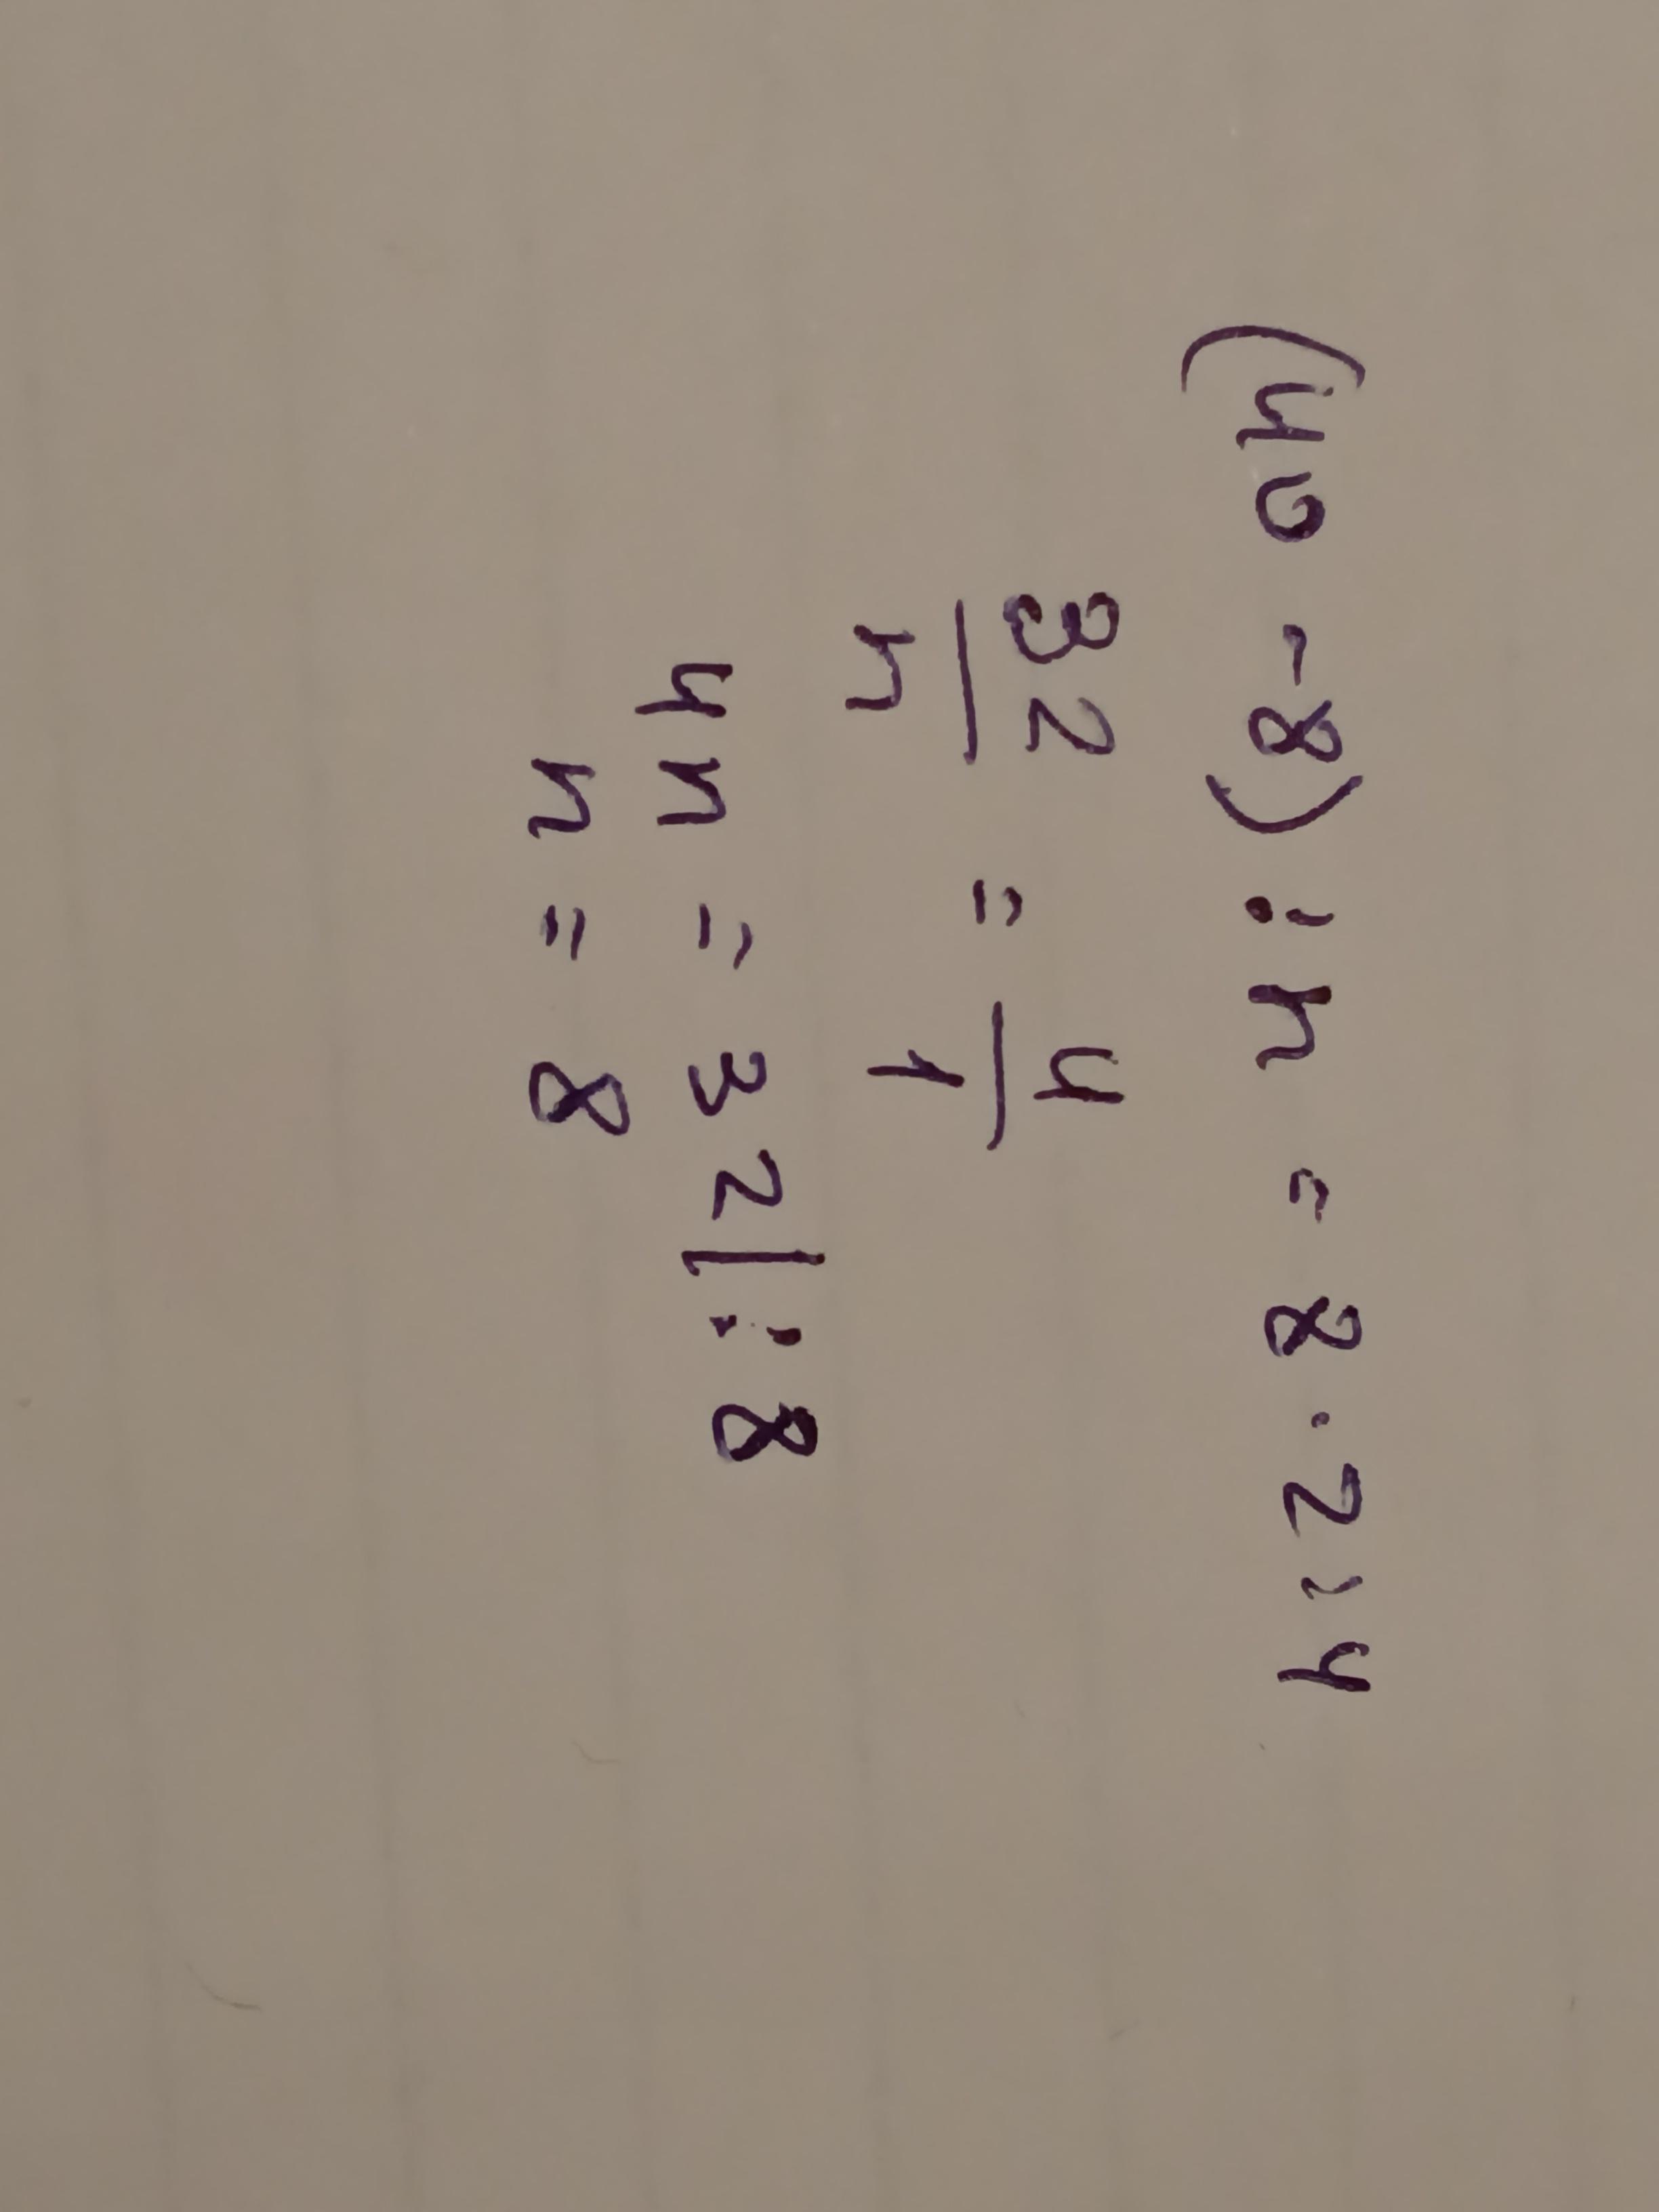 (40 - 8) : n = 8 · 2 : 4
32/n = 4/1
4n = 32 | : 8
n = 8